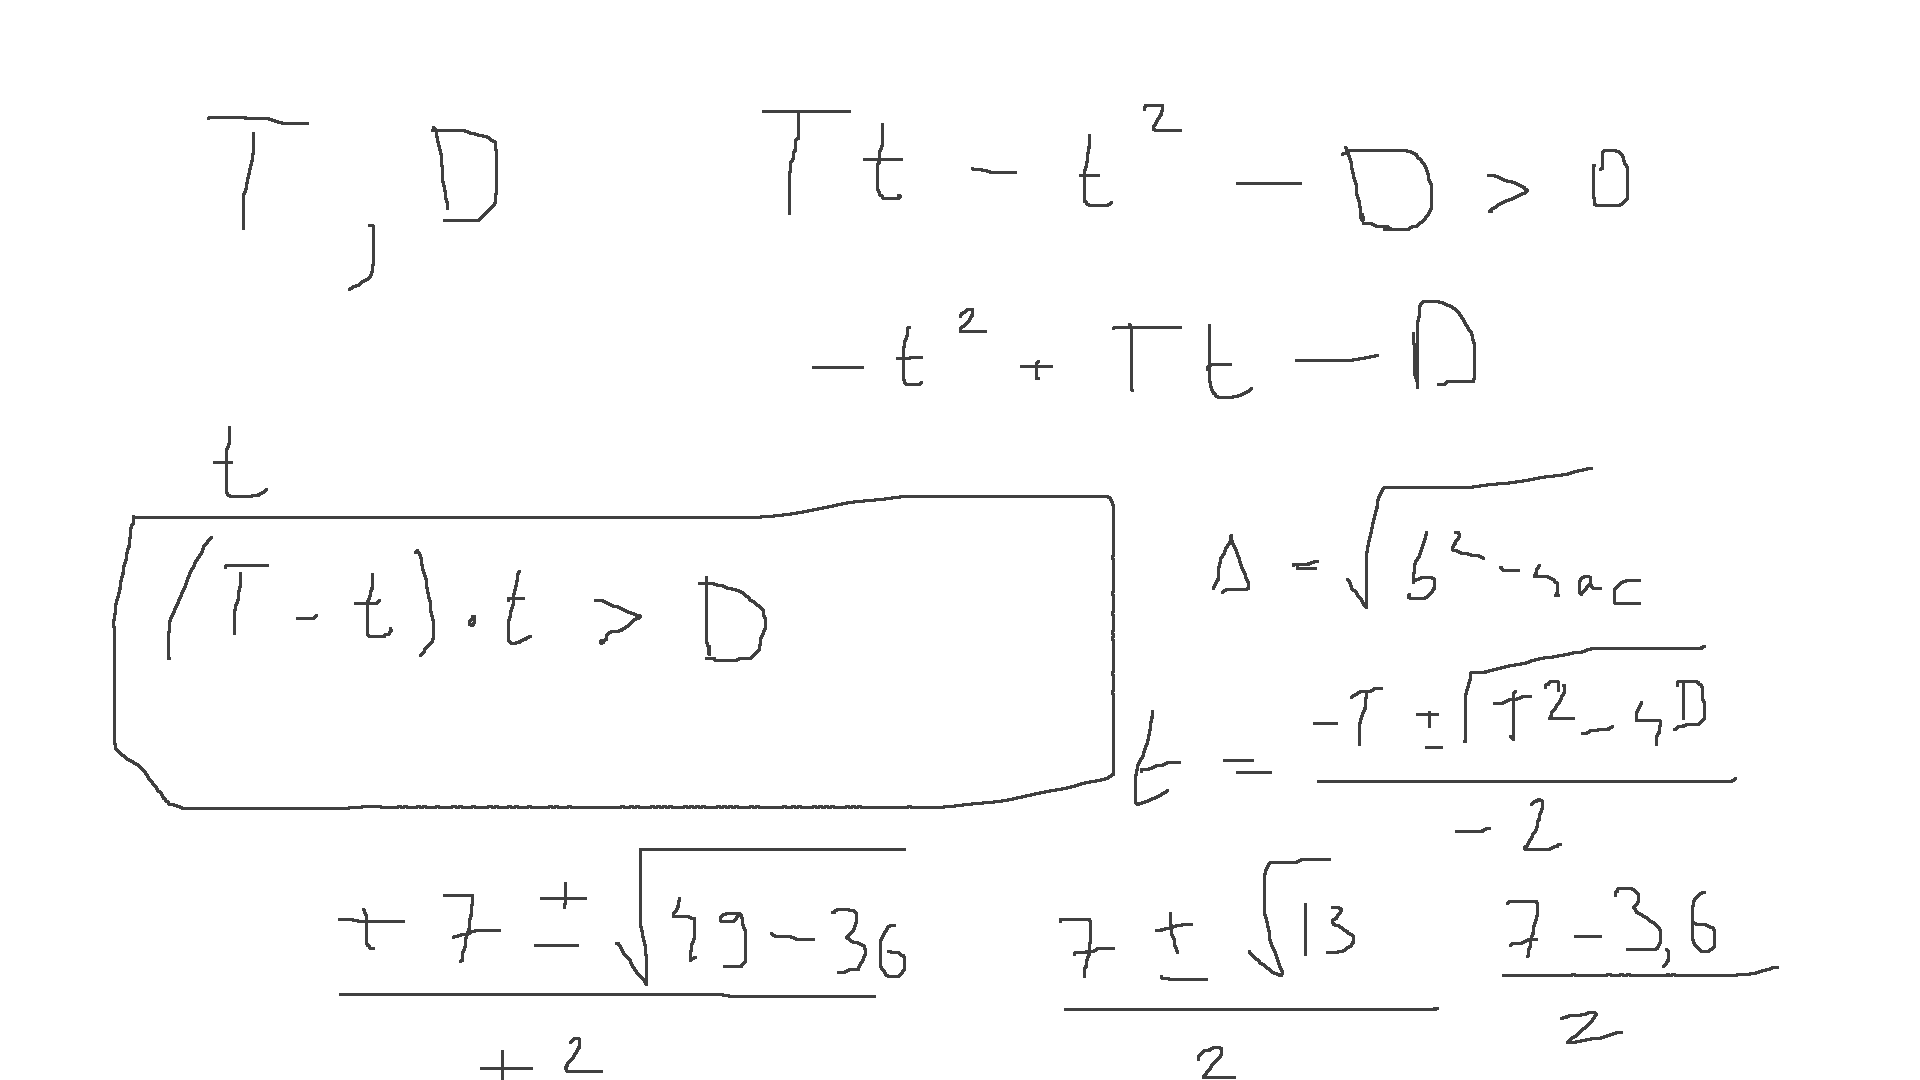 T, D
Tt - t² - D > 0
- t² + Tt - D
t
(T - t) · t > D
Δ = √(b² - 4ac)
t = (-T ± √(T² - 4D)) / -2
(+7 ± √(49 - 36)) / +2
(7 ± √13) / 2
(7 - 3,6) / 2